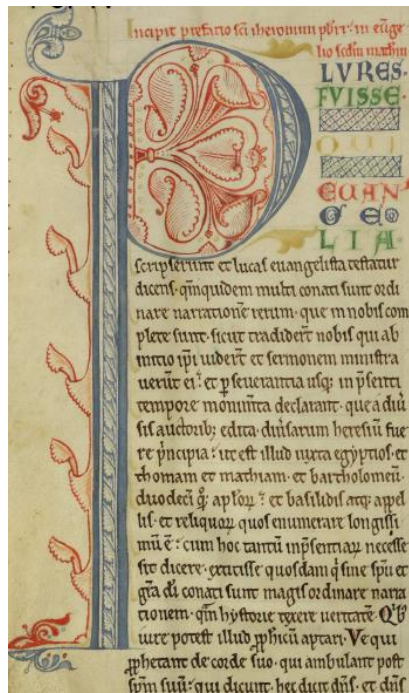 Incipit prefatio sci iheronimi pbiri in euge
lio scdm mathm
PLVRES
FVISSE
QUI
EUAN
GELIA
scripserunt et lucas euangelista testatur
dicens. qm̅quidem multi conati sunt ordi
nare narrationem rerum. que in nobis com
plete sunt. sicut tradider̅t nobis qui ab
initio ip̅i uider̅t et sermonem ministra
uer̅t ei. et p̱seuerantia usq; in p̅senti
tempore monim̅ta declarant. que a diu̅
sis auctorib; edita. diu̅sarum heresiu̅ fue
re p̅ncipia. ut est illud iuxta egyptios. et
thomam et mathiam. et bartholomeu̅.
duodeci̅ q̊. ap̅lor̅. et basilidis atq; appel
lis. et reliquoꝝ quos enumerare longissi
mu̅ e̅. cum hoc tantu̅ in p̅sentiaꝝ necesse
sit dicere. extitisse quosdam q̇ sine sp̅u et
gr̅a di̅ conati sunt magis ordinare narra
tionem. qm̅ hystorie texere ueritate̅. Qͥb
iure potest illud p̱phicu̅ aptari. Ve qui
p̱phetant de corde suo. qui ambulant post
sp̅m suu̅. qui dicunt. hec dicit dn̅s. et dn̅s